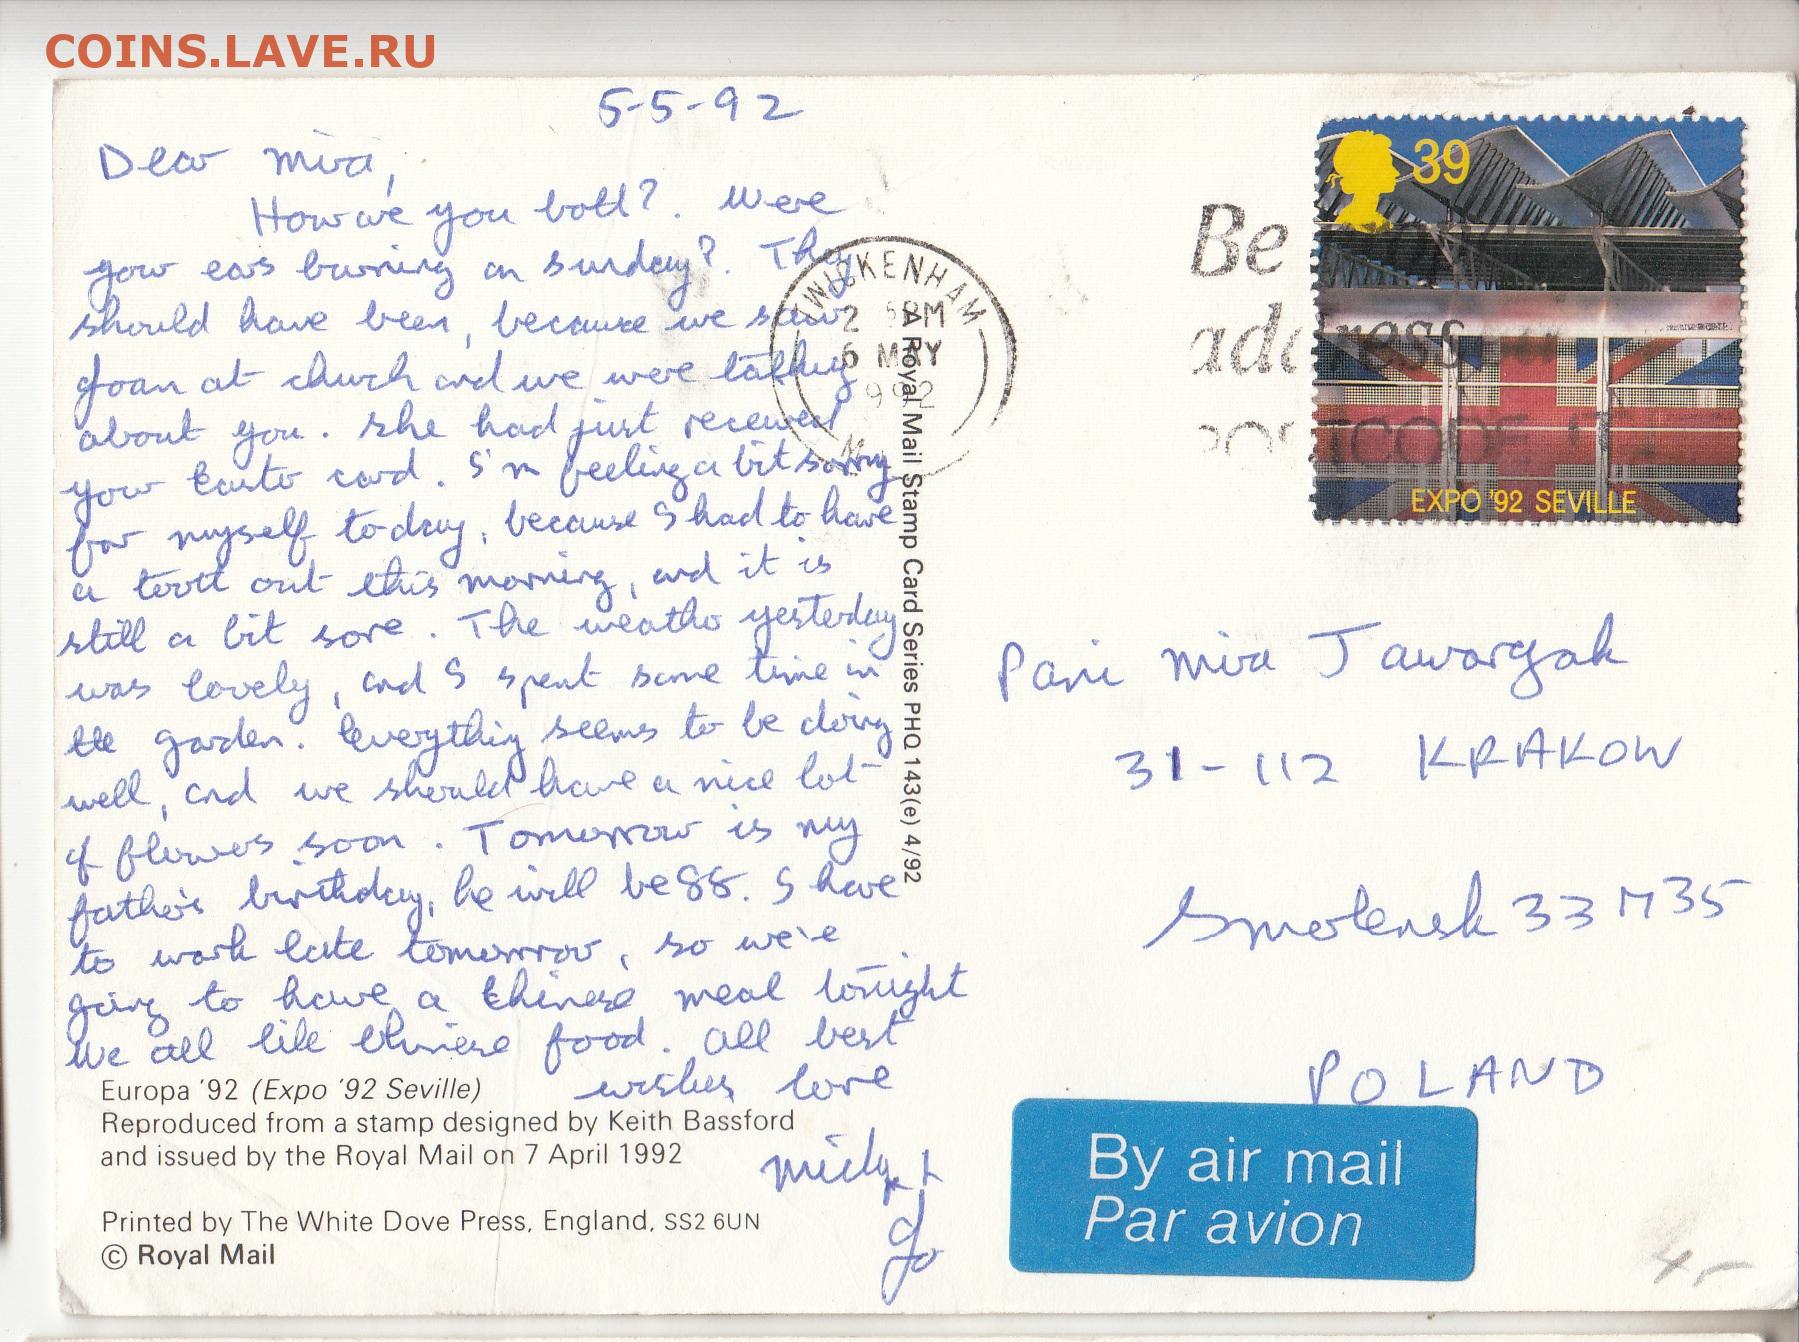 COINS.LAVE.RU
5-5-92
Dear Mira,
How are you both?. Were
your ears burning on Sunday?. They
should have been, because we saw
Joan at church and we were talking
about you. She had just received
your Easter card. I'm feeling a bit sorry
for myself today, because I had to have
a tooth out this morning, and it is
still a bit sore. The weather yesterday
was lovely, and I spent some time in
the garden. Everything seems to be doing
well, and we should have a nice lot
of flowers soon. Tomorrow is my
father's birthday, he will be 88. I have
to work late tomorrow, so we're
going to have a Chinese meal tonight
We all like Chinese food. All best
wishes love
+
Jo
Europa '92 (Expo '92 Seville)
Reproduced from a stamp designed by Keith Bassford
and issued by the Royal Mail on 7 April 1992
Printed by The White Dove Press, England, SS2 6UN
© Royal Mail
A Royal Mail Stamp Card Series PHQ 143(e) 4/92
TWICKENHAM
2 PM
6 MAY
1992
Be
address
POSTCODE IT
39
EXPO '92 SEVILLE
Pani Mira Jaworzak
31-112 KRAKOW
Smolensk 33 M35
POLAND
By air mail
Par avion